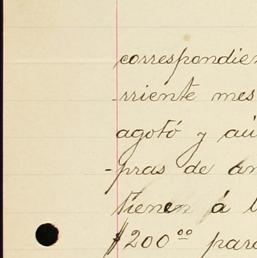 correspondien
-rriente mes
agotó y aú
-pras de an
tienen á l
$200⁰⁰ para